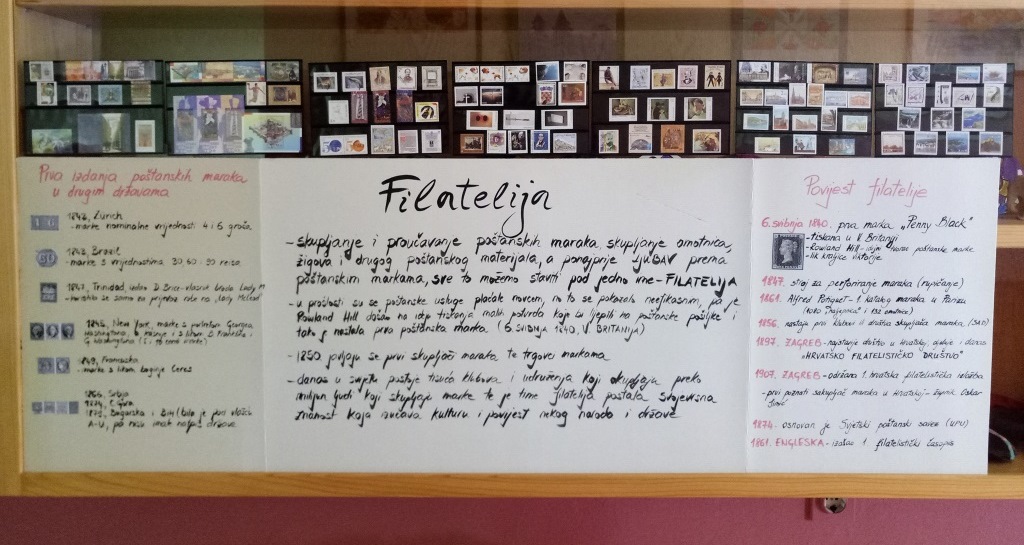 Prva izdanja poštanskih maraka
u drugim državama
1843, Zürich
- marke nominalne vrijednosti 4 i 6 groša
1843, Brazil
- marke s vrijednostima 30, 60 i 90 reisa
1847, Trinidad,
- koristila se samo na
New York, marke s portretom Georgea
Washingtona
G. Washingtona
1849, Francuska
- marke s likom boginje Ceres
1866, Srbija
1874, C. Gora
1879, Bugarska i BiH (bila je pod vlašću
A-U, pa nosi
Filatelija
- skupljanje i proučavanje poštanskih maraka, skupljanje omotnica,
žigova i drugog poštanskog materijala, a ponajprije LJUBAV prema
poštanskim markama, sve to možemo staviti pod jedno ime - FILATELIJA
- u prošlosti su se poštanske usluge plaćale novcem, no to se pokazalo neefikasnim, pa je
Rowland Hill došao na ideju tiskanja malih potvrda koje bi lijepili na poštanske pošiljke i
tako je nastala prva poštanska marka. (6. SVIBNJA 1840, V. BRITANIJA)
- 1850 javljaju se prvi skupljači maraka te trgovci markama
- danas u svijetu postoje tisuće klubova i udruženja koji okupljaju preko
milijun ljudi koji skupljaju marke te je time filatelija postala svojevrsna
znanost koja izučava kulturu i povijest nekog naroda i države
Povijest filatelije
6. svibnja 1840. prva marka „Penny Black"
- tiskana u V. Britaniji
- Rowland Hill - idejni
- lik kraljice Viktorije
1847. stroj za perforiranje maraka (rupičanje)
1861. Alfred Potiquet - 1. katalog maraka u Parizu
(1080 i 132 omotnice)
1856. nastaju prvi klubovi ili društva skupljača maraka (SAD)
1897. ZAGREB - najstarije društvo u Hrvatskoj, djeluje i danas
„HRVATSKO FILATELISTIČKO DRUŠTVO"
1907. ZAGREB - održana 1. hrvatska filatelistička izložba
- prvi poznati sakupljač maraka u Hrvatskoj - Oskar
1874. osnovan je Svjetski poštanski savez (UPU)
1861. ENGLESKA - izašao 1. filatelistički časopis